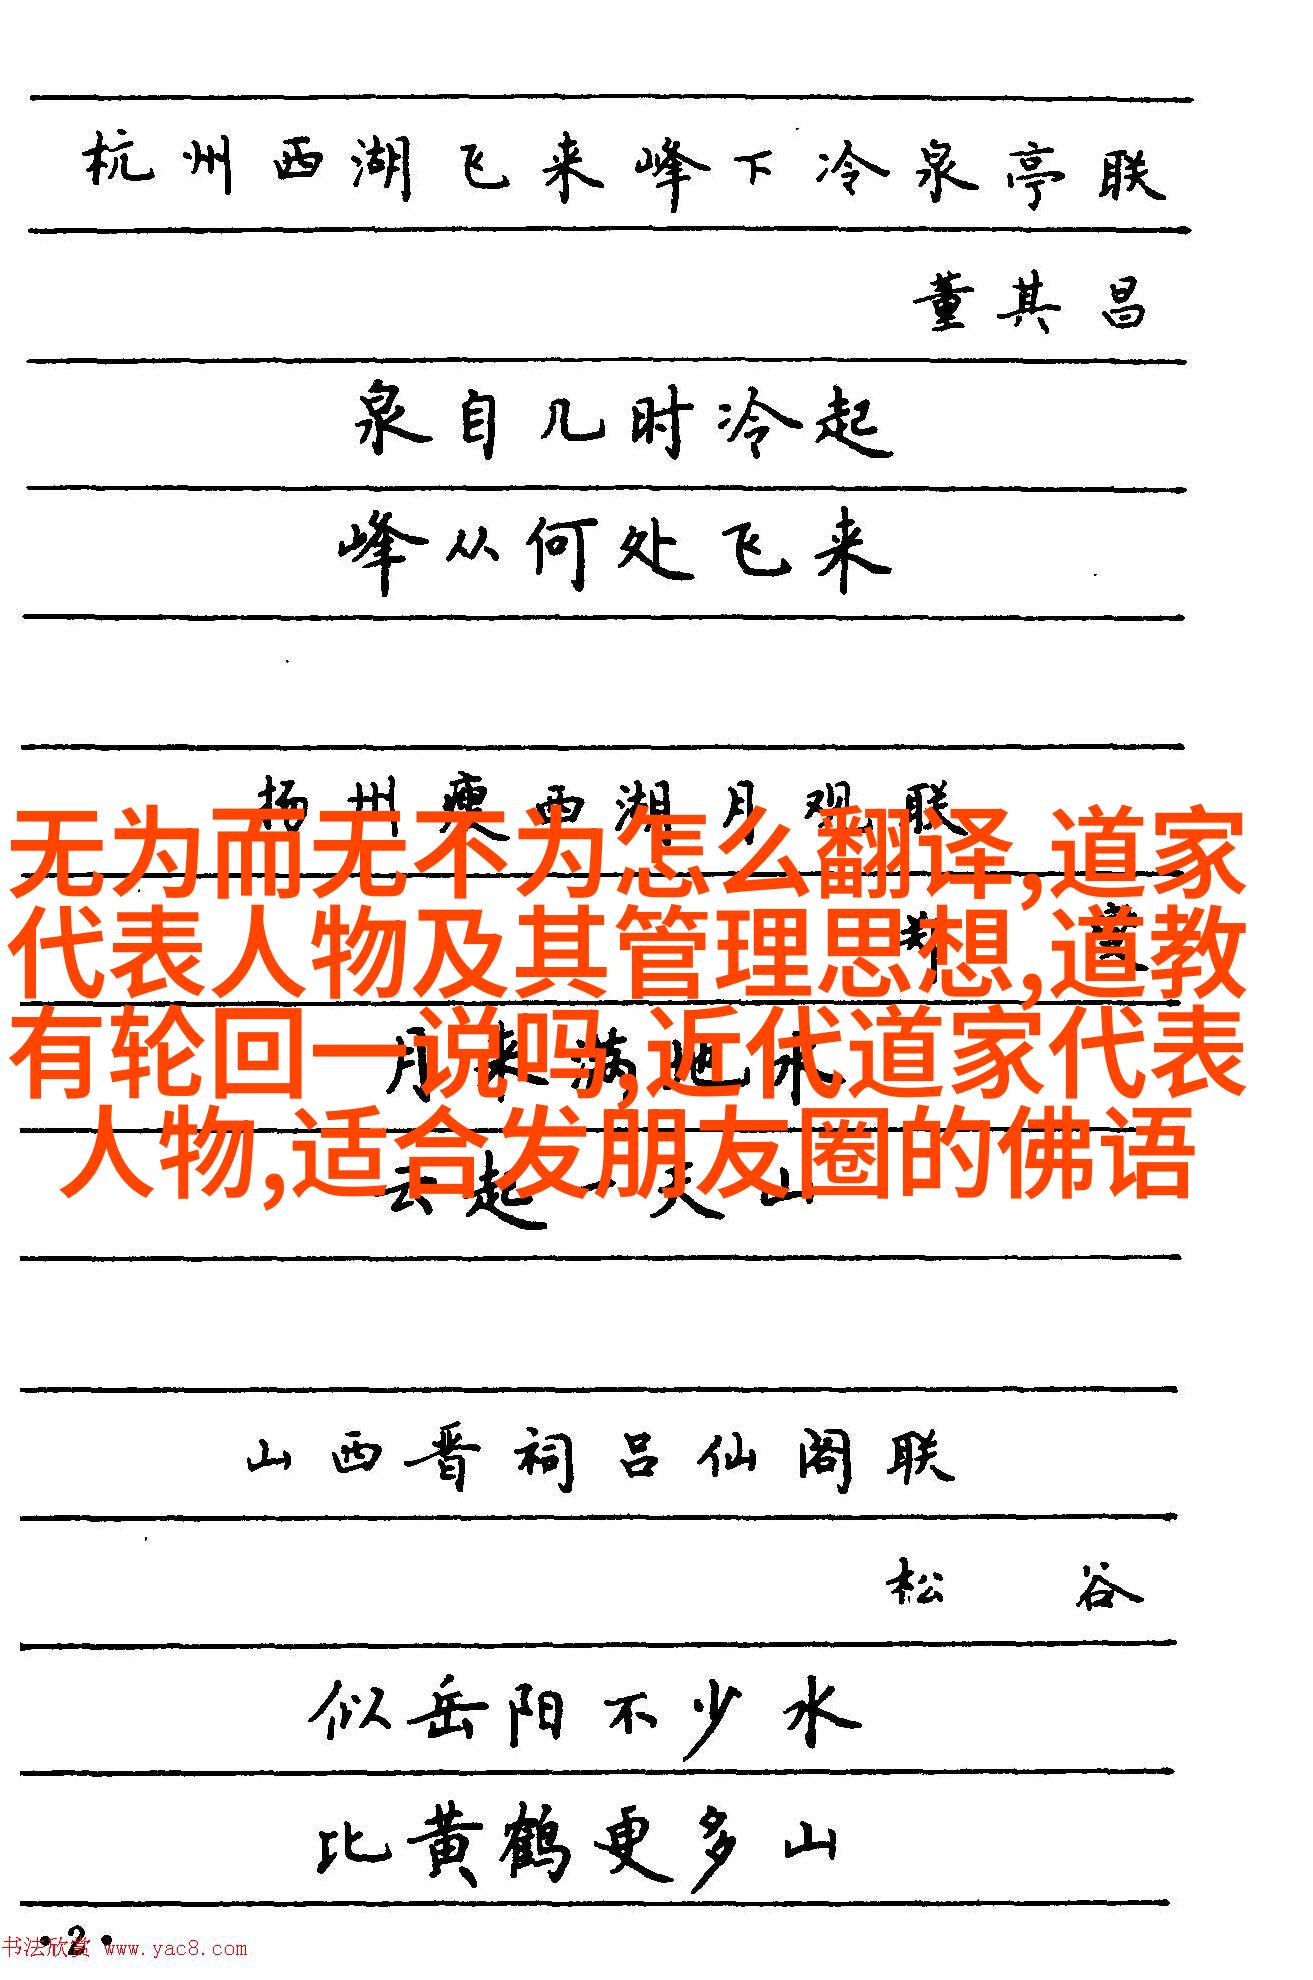 杭州西湖飞来峰下冷泉亭联
董其昌
泉自几时冷起
峰从何处飞来
扬州瘦西湖月观联
无为而无不为怎么翻译,道家
代表人物及其管理思想,道教
有轮回一说吗,近代道家代表
人物,适合发朋友圈的佛语
月来满地水
云起一天山
山西晋祠吕仙阁联
松谷
似岳阳不少水
比黄鹤更多山
·2·
书法欣赏 www.yac8.com